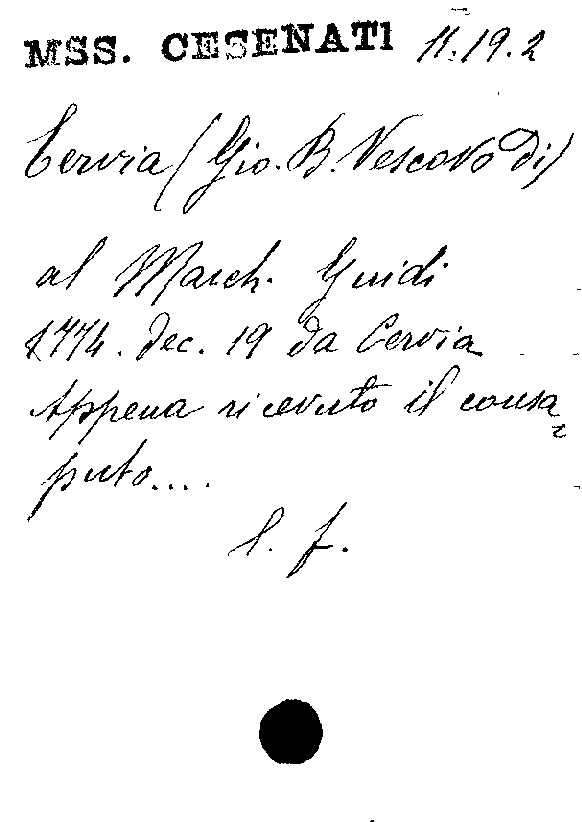 MSS. CESENATI 11.19.2
Cervia (Gio. B. Vescovo di)
al March. Guidi
1774. dec. 19 da Cervia
Appena ricevuto il consa=
puto....
l. f.